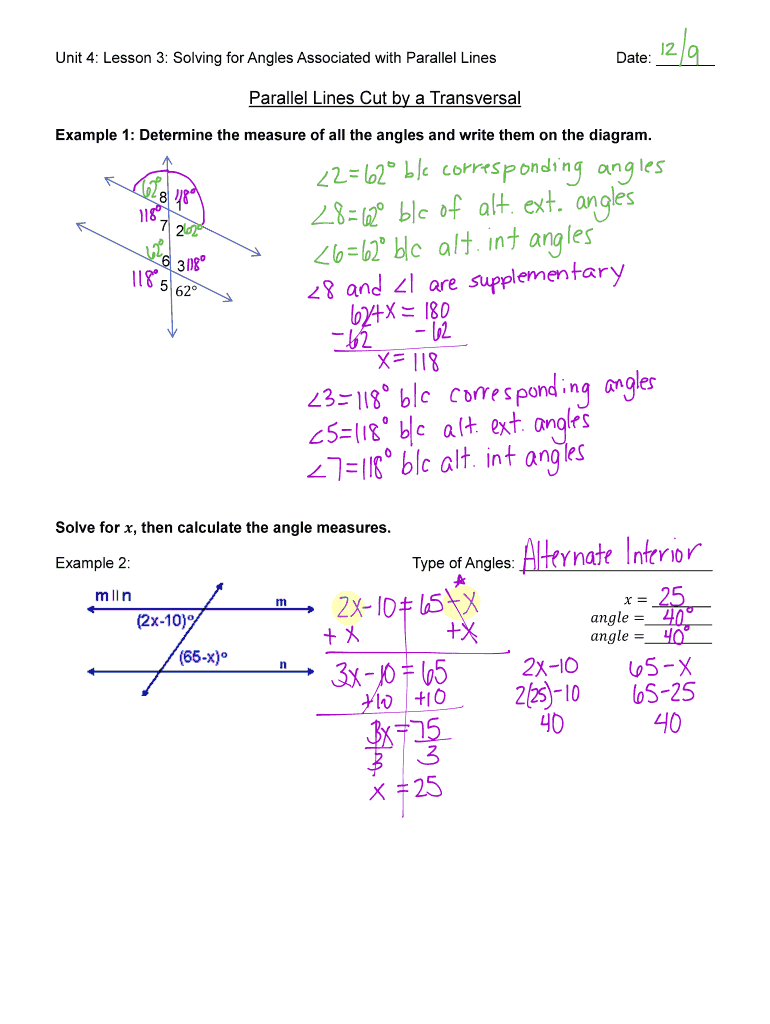 Unit 4: Lesson 3: Solving for Angles Associated with Parallel Lines Date: 12/9
Parallel Lines Cut by a Transversal
Example 1: Determine the measure of all the angles and write them on the diagram.
62° 8 118° 1
118° 7 2 62°
62° 6 3 118°
118° 5 62°
∠2=62° b/c corresponding angles
∠8=62° b/c of alt. ext. angles
∠6=62° b/c alt. int angles
∠8 and ∠1 are supplementary
62+x = 180
-62 -62
x = 118
∠3=118° b/c corresponding angles
∠5=118° b/c alt. ext. angles
∠7=118° b/c alt. int angles
Solve for x, then calculate the angle measures.
Example 2: Type of Angles: Alternate Interior
m || n
m
(2x-10)°
(65-x)°
n
2x-10 = 65-x
+x +x
3x-10 = 65
+10 +10
3x = 75
3 3
x = 25
x = 25
angle = 40°
angle = 40°
2x-10 65-x
2(25)-10 65-25
40 40